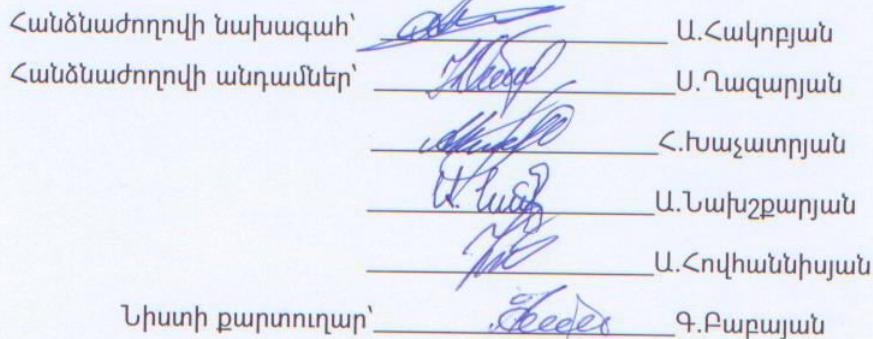 Հանձնաժողովի նախագահ՝ Ա.Հակոբյան
Հանձնաժողովի անդամներ՝ Ս.Ղազարյան
Հ.Խաչատրյան
Ա.Նախշքարյան
Ա.Հովհաննիսյան
Նիստի քարտուղար՝ Գ.Բաբայան